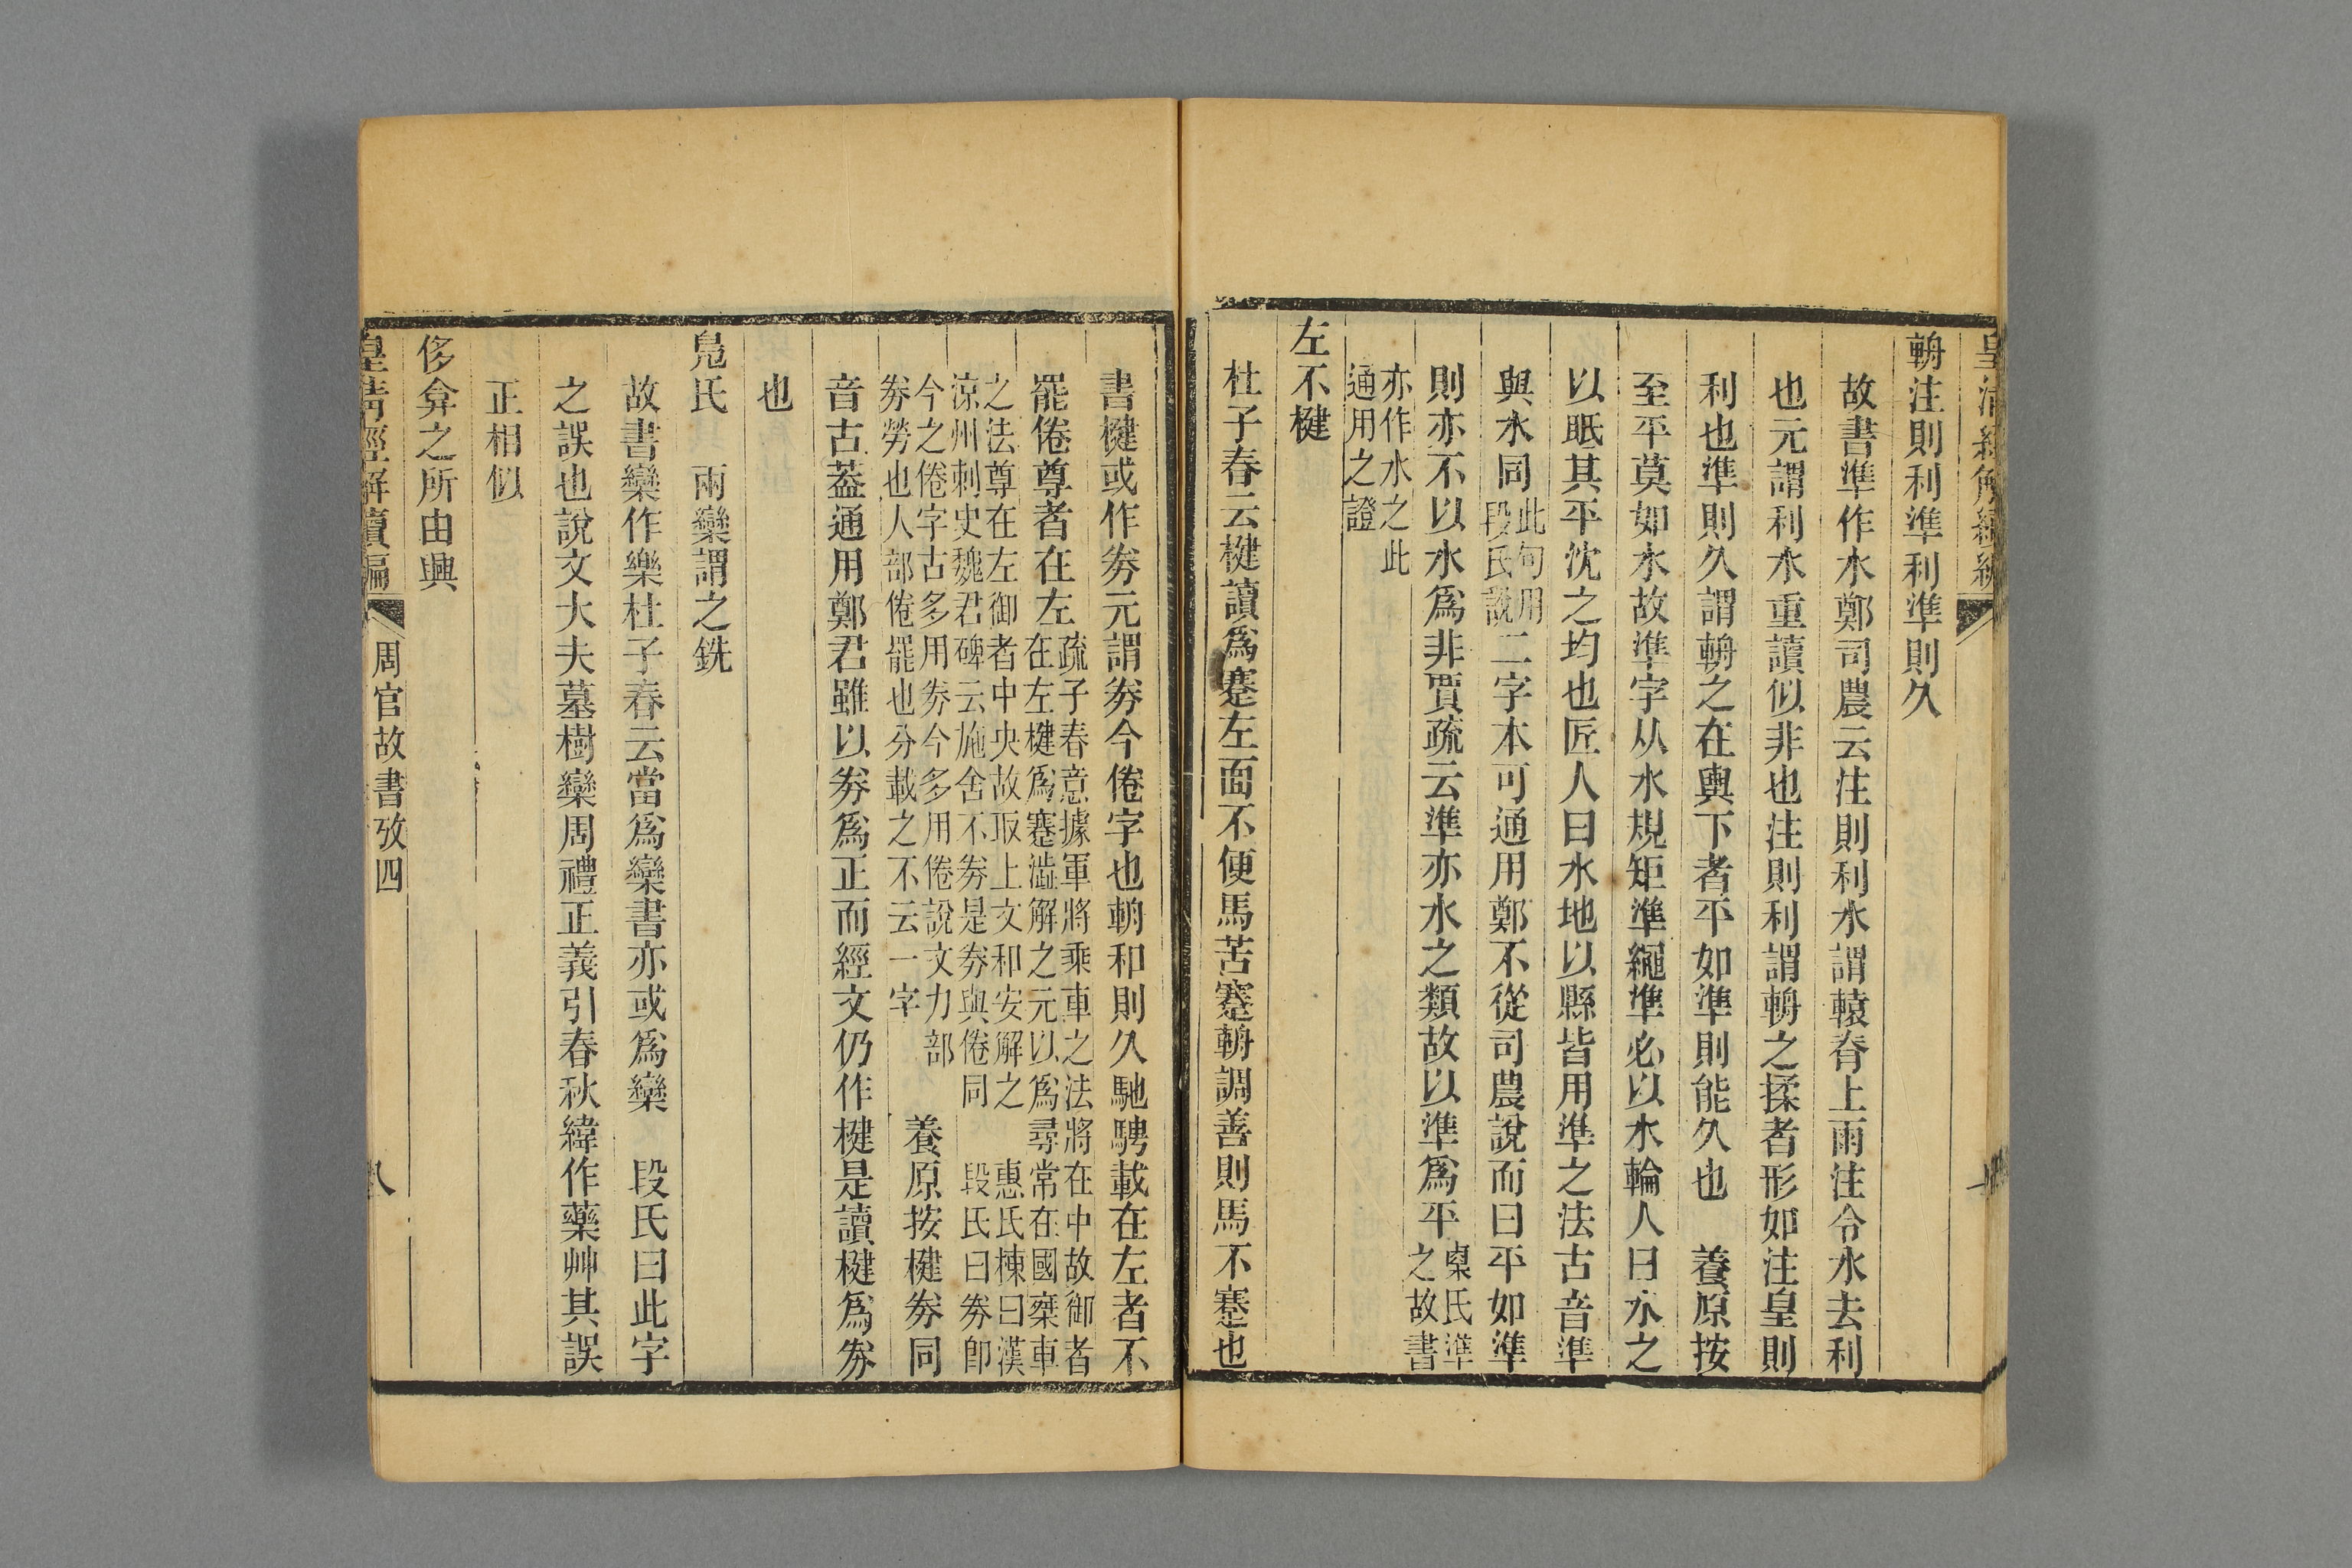 輈注則利準利準則久
故書準作水鄭司農云注則利水謂轅脊上雨注令水去利
也元謂利水重讀似非也注則利謂輈之揉者形如注星則
利也準則久謂輈之在輿下者平如準則能久也　養原按
至平莫如水故準字从水規矩準繩準必以水輪人曰水之
以眡其平沈之均也匠人曰水地以縣皆用準之法古音準
與水同此句用段氏說二字本可通用鄭不從司農說而曰平如準
則亦不以水爲非賈疏云準亦水之類故以準爲平㮚氏準之故書
亦作水之此通用之證
左不楗
杜子春云楗讀爲蹇左面不便馬苦蹇輈調善則馬不蹇也
書楗或作劵元謂劵今倦字也輈和則久馳騁載在左者不
罷倦尊者在左疏子春意據軍將乘車之法將在中故御者在左楗爲蹇澁解之元以爲尋常在國乘車
之法尊在左御者中央故取上文和安解之　惠氏棟曰漢涼州刺史魏君碑云施舍不劵是劵與倦同　段氏曰劵卽
今之倦字古多用劵今多用倦說文力部劵勞也人部倦罷也分載之不云一字　養原按楗劵同
音古葢通用鄭君雖以劵爲正而經文仍作楗是讀楗爲劵
也
鳧氏　兩欒謂之銑
故書欒作樂杜子春云當爲欒書亦或爲欒　段氏曰此字
之誤也說文大夫墓樹欒周禮正義引春秋緯作藥艸其誤
正相似
侈弇之所由興
皇淸經解續編　周官故書攷四　八